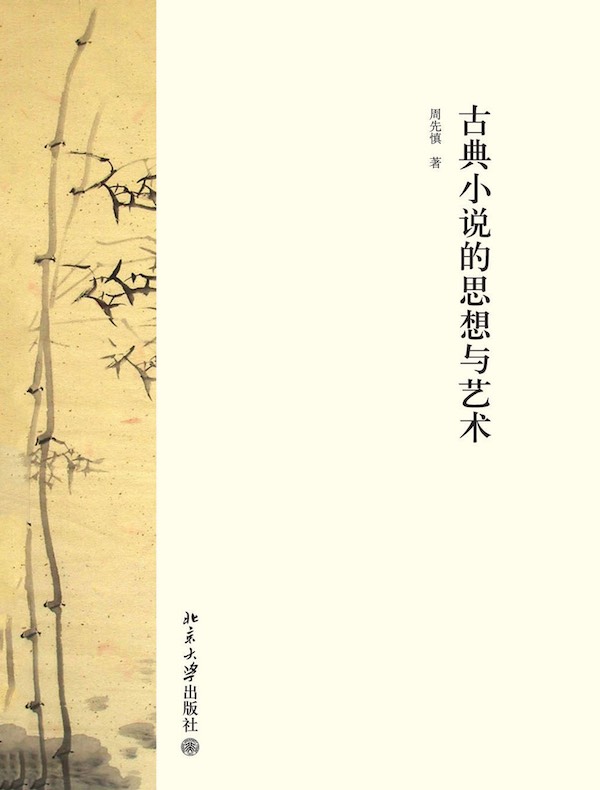 古典小说的思想与艺术
周先慎 著
北京大学出版社